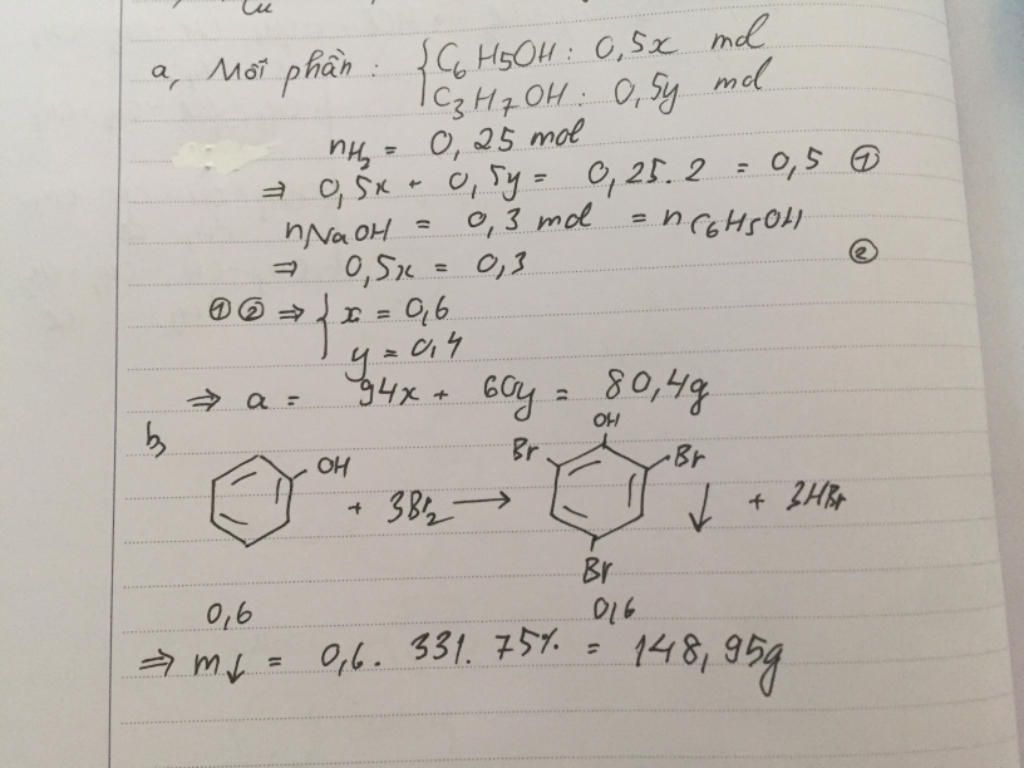 Cu
a, Mỗi phần : { C₆H5OH : 0,5x mol
C₃H₇OH : 0,5y mol
nH₂ = 0,25 mol
⇒ 0,5x + 0,5y = 0,25.2 = 0,5 ①
nNaOH = 0,3 mol = nC6H5OH
⇒ 0,5x = 0,3 ②
①② ⇒ { x = 0,6
y = 0,4
⇒ a = 94x + 60y = 80,4g
b,
OH + 3Br₂ → OH Br Br Br ↓ + 3HBr
0,6 0,6
⇒ m↓ = 0,6 . 331. 75% = 148,95g